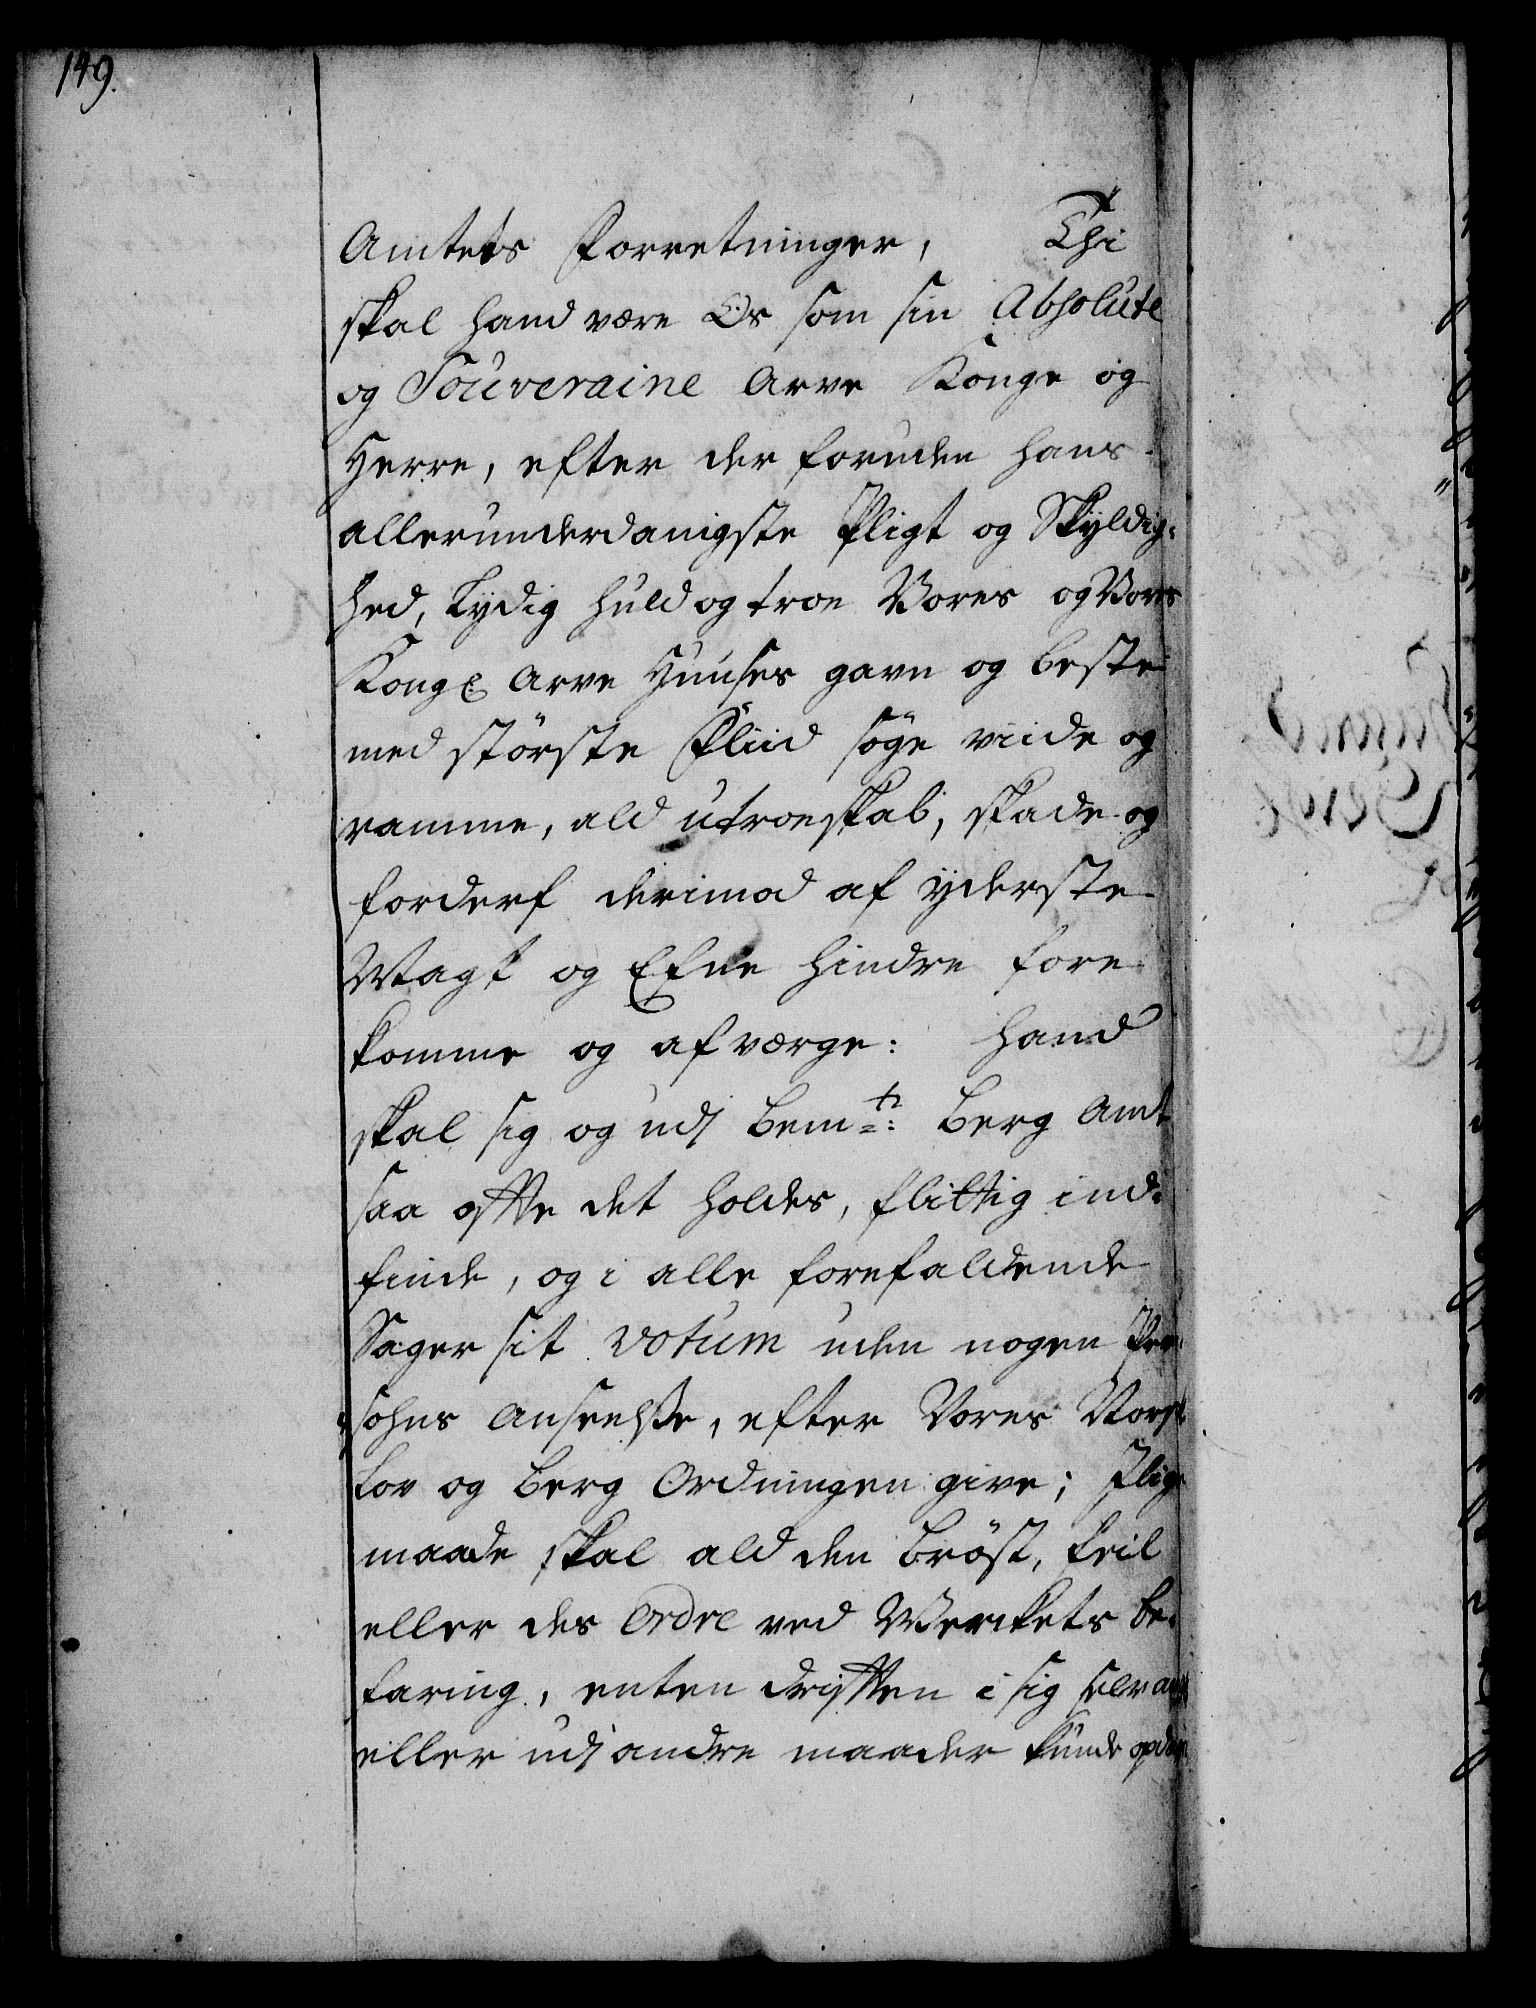 149.
Amtets Forretninger, Thi
skal hand være Os som sin Absolute
og Souveraine Arve Konge og
Herre, efter der foruden hans
allerunderdanigste Pligt og Skyldig-
hed, Lydig huld og troe Vores og Vores
Kongl Arve Huuses gavn og beste
med störste Fliid söge viide og
ramme, ald utroeskab, skade og
forderf derimod af yderste
Magt og Efne hindre fore
komme og afværge: Hand
skal sig og udj bemte: Berg Amt
saa offte det holdes, flittig ind-
finde, og i alle forefaldende
Sager sit votum uden nogen Per-
sohns Anseelsse, efter Vores Norske
Lov og Berg Ordningen give; Slige
maade skal ald den bröst, feil
eller des Ordre ved Werckets be-
faring, enten drifften i sig selv
eller udj andre maader kunde